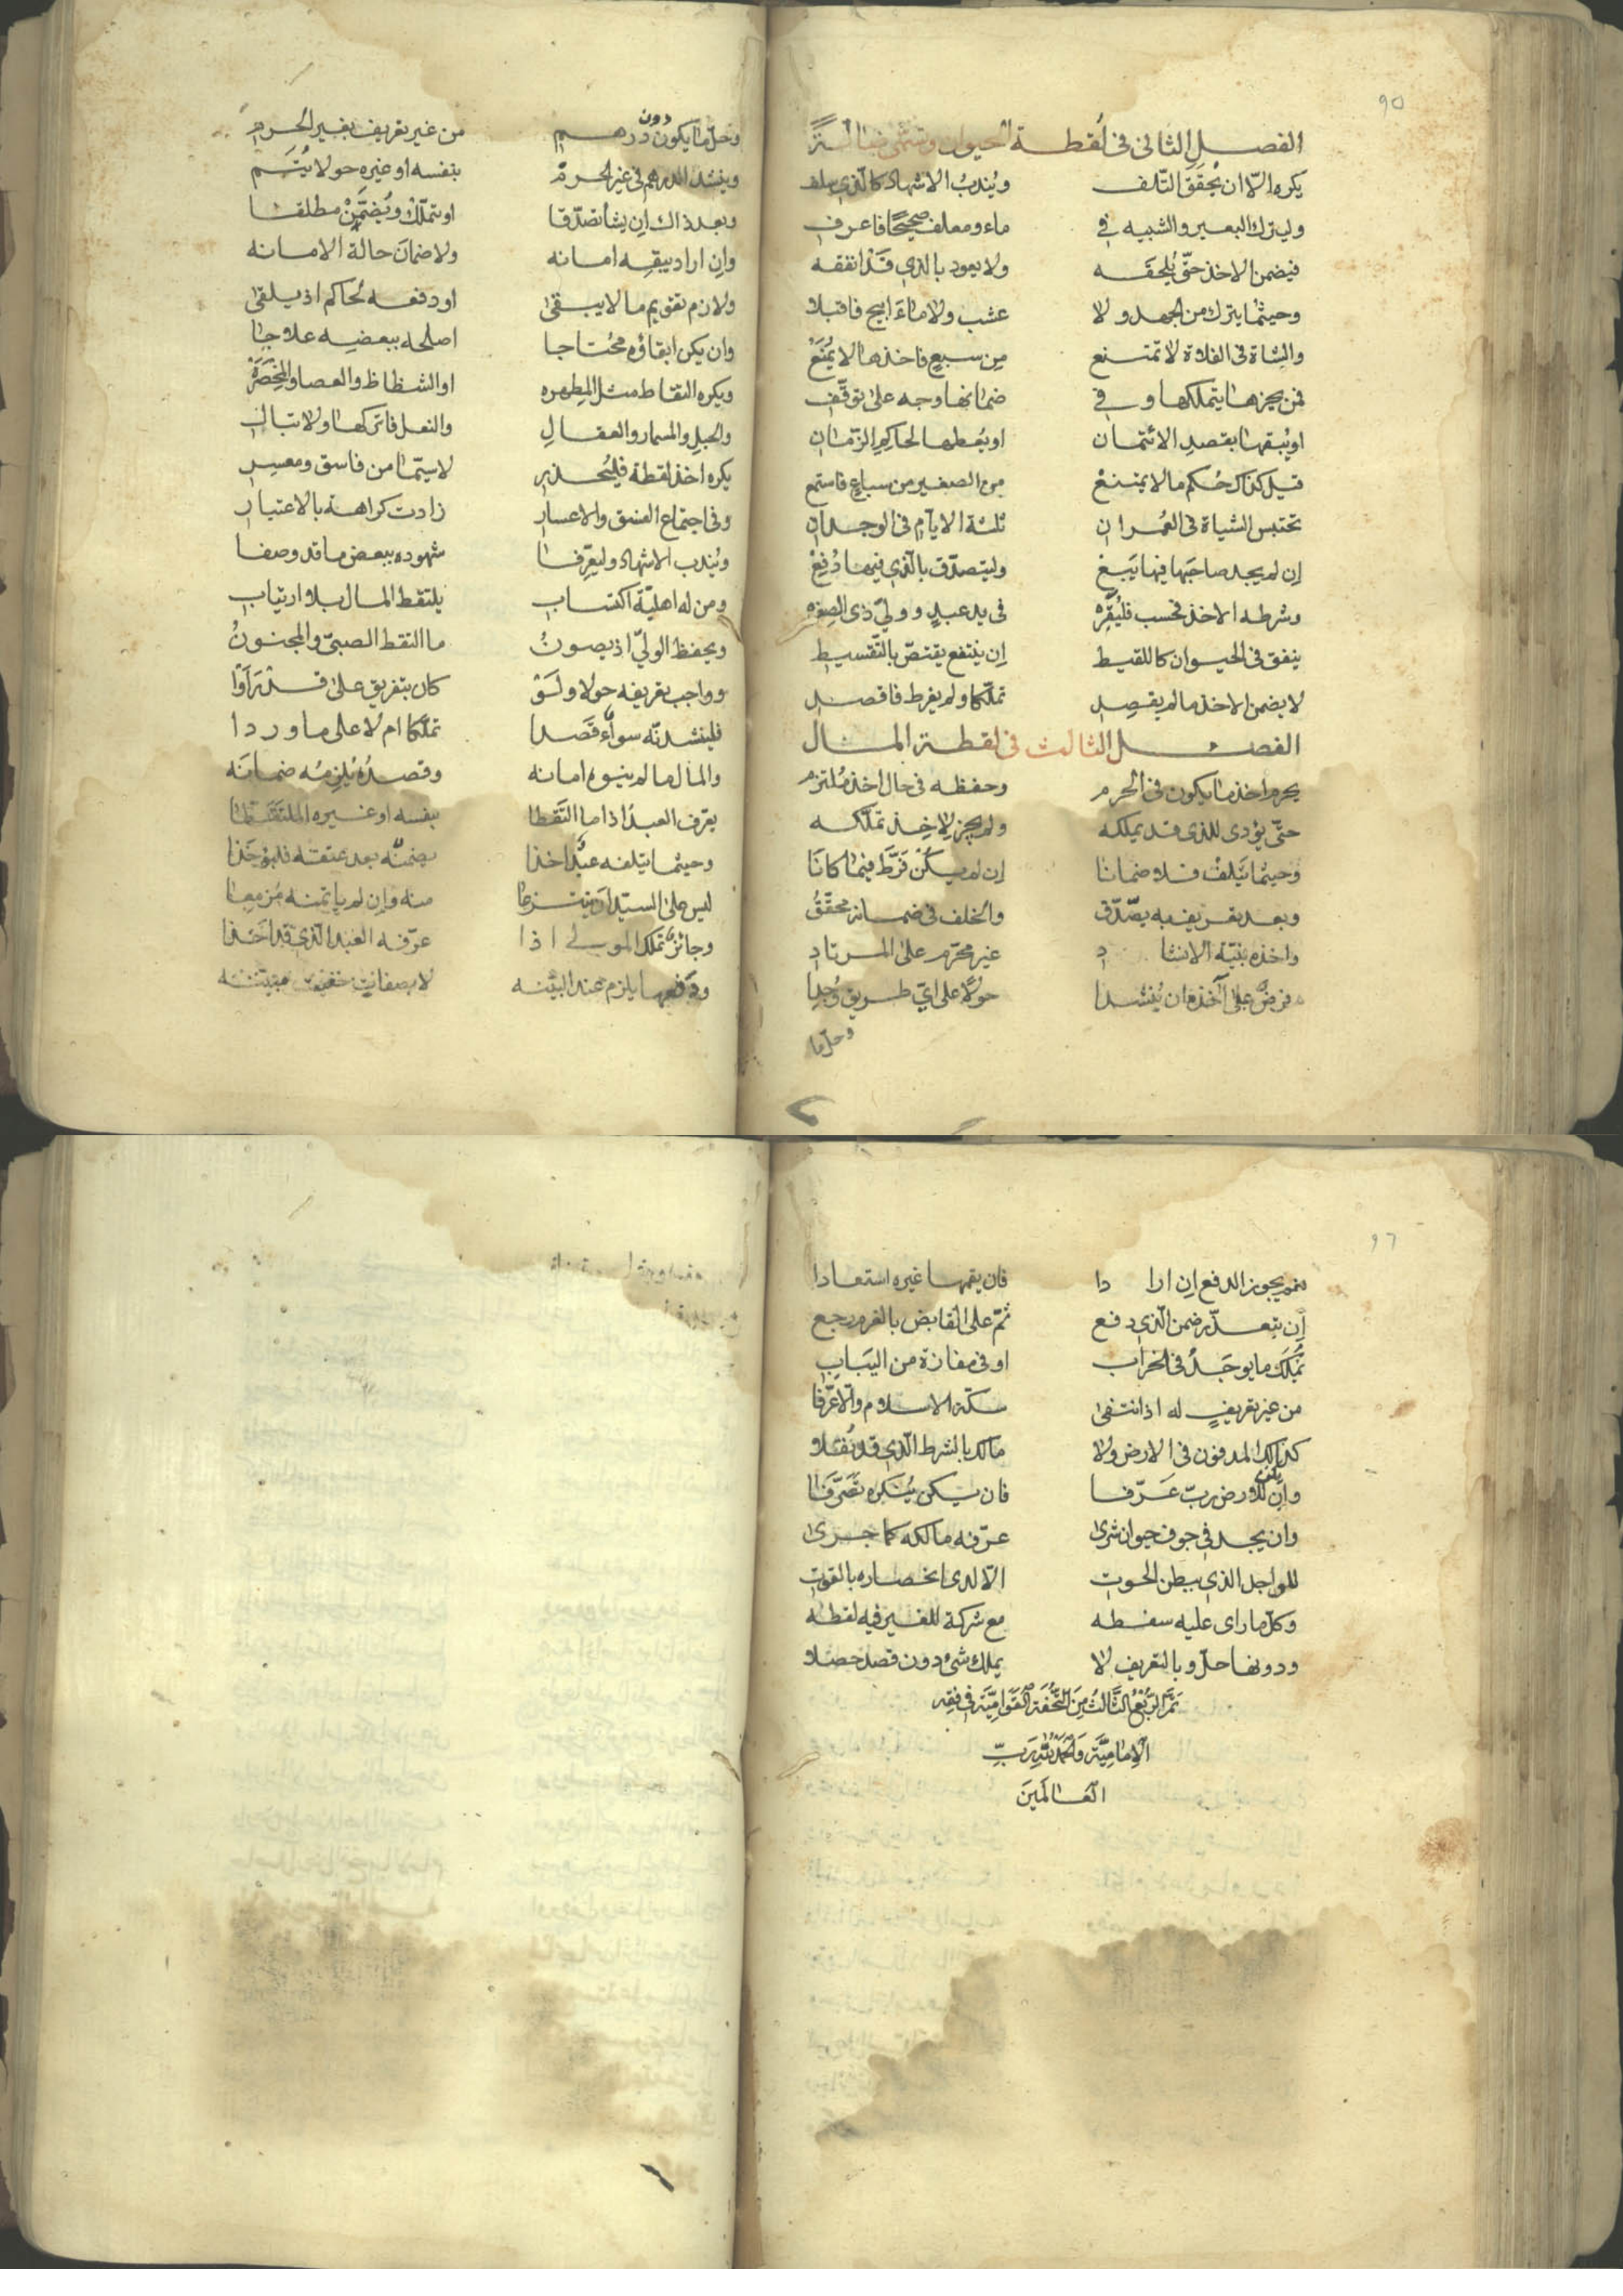 ٩٥
الفصل الثاني في لُقطة الحيوان وتسمّى ضالّةً
يكره الّا ان يُحقَّقَ التّلف ويُندبُ الاشهاد كالّذي سلف
وليترك البعير والشبيه في ماء ومعلف صحيحًا فاعرف
فيضمن الاخذ حتّى يُلحقَه ولا يعود بالذي قَدْ انفقه
وحيثما يترك من الجهد ولا عشب ولا ماءَ ابيح فاقبلا
والشاة في الفلاة لا تمتنع من سبعٍ فاخذها لا يُمنَعْ
فمن يجزها يتملكها وفي ضمانها وجه على توقّف
او يُبقها بقصدِ الائتمان او يُعطها لحاكم الزّمان
قيل كذاك حُكم ما لا يمتنعْ من الصغير من سباعٍ فاستمع
تحتبس الشياة في العُمران ثلثة الايّام في الوجدان
ان لم يجد صاحبَها فيها يَبِعْ وليتصدّق بالّذي فيها دُفِعْ
وشرطه الاخذ فحسب فليُقرّه في يد عبدٍ ووليّ ذي الصغره
ينفق في الحيوان كاللقيط ان ينتفع يقتصّ بالتّقسيط
لا يضمن الاخذ ما لم يقصِد تملّكا ولم يفرط فاقصد
الفصل الثالث في لقطة المال
يحرم اخذ ما يكون في الحرم وحفظه في حال اخذ مُلتزم
حتّى يؤدى للذي قد يملكه ولم يجز لِاخِذ تملّكه
وحيثما يَتلفْ فلا ضمانا ان لم يكُنْ فَرَّطَ فيما كانَا
وبعد تعريف به يصّدّق والخلف في ضمانه محقّقُ
واخذه بنيّة الانشاد غير محرّم على المرتاد
فرضٌ على آخذه ان يُنشدا حولًا على ايّ طريق وُجدا
وحلّ ما
وحلّ ما يكون دون درهم من غير تعريف بغير الحرم
وينشد الدرهم في غير الحرمْ بنفسه او غيره حولا يُتَم
وبعد ذاك ان يشأ تصدّقا او يتملّكْ ويُضمَّنْ مطلقا
وان اراد يبقِه امانه ولا ضمانَ حالة الامانه
ولازم تقويم ما لا يبقى او دفعه لحاكم اذ يلقى
وان يكن ابقاؤه محتاجا اصلحه ببعضِه علاجا
ويكره التقاط مثل المِطهره او الشظاظ والعصا والمِخصَرَهْ
والحبلِ والمسمار والعقالِ والنعل فاتركها ولا تبالِ
يكره اخذ لقطة فليُحذر لا سيّما من فاسق ومعسر
وفي اجتماع الفسق والاعسار زادت كراهة بالاعتبار
ويُندب الاشهاد وليعرّفا شهوده ببعض ما قد وصفا
ومن له اهليّة اكتساب يلتقط المال بلا ارتياب
ويحفظ الوليّ اذ يصونُ ما التقط الصبيّ والمجنونُ
وواجب تعريفه حولا ولَوْ كان بتفريق على ما قد رَأَوْا
فلينشدنّه سواءٌ قَصَدا تملّكا ام لا على ما وردا
والمال ما لم ينوه امانه وقصدُه يُلزمُه ضمانَه
يعرّف العبدُ اذا ما التَقطا بنفسه او غيره الملتَقَطا
وحيثما يتلفه عبدٌ اخذا يضمنُه بعد عتقه
ليس على السيّد أن ينتزعا منه وان لم ياتمنه مُزمعا
وجائزٌ تملّك المولى اذا عرّفه العبد الّذي قد اخذا
ودفعها يلزم عند البيّنه لا بصفاتٍ خفيت مبيّنه
٩٦
نعم يجوز الدفع ان ارادا فان يقمها غيره استعادا
ان يتعذّر ضمن الّذي دفع ثمّ على القابض بالغرم رجع
تُملَك ما يوجَدُ في الخراب او في مفازة من اليَبابِ
من غير تعريفٍ له اذا انتفى سكّة الاسلام والّا عرّفا
كذلك المدفون في الارض ولا مالك بالشرط الّذي قد نُقلا
وان يكن للارض ربّ عَرّفا فان يكن يُنكره تَصَرَّفا
وان يجد في جوف حيوان شرى عرّفه مالكه كما جرى
للواجد الذي ببطن الحوت الّا لدى انحصاره بالقوت
وكلّ ما راى عليه سفطه مع شركة للغير فيه لقطه
ودونها حلّ وبالتعريف لا يملك شيءٌ دون قصد حصلا
تَمَّ الرّبُعُ الثَّالِثُ مِنَ التُّحْفَةِ القَوَامِيَّةِ في فِقهِ
الاِمامِيَّةِ وَالحَمدُ لِلّهِ رَبِّ
العَالَمِينَ